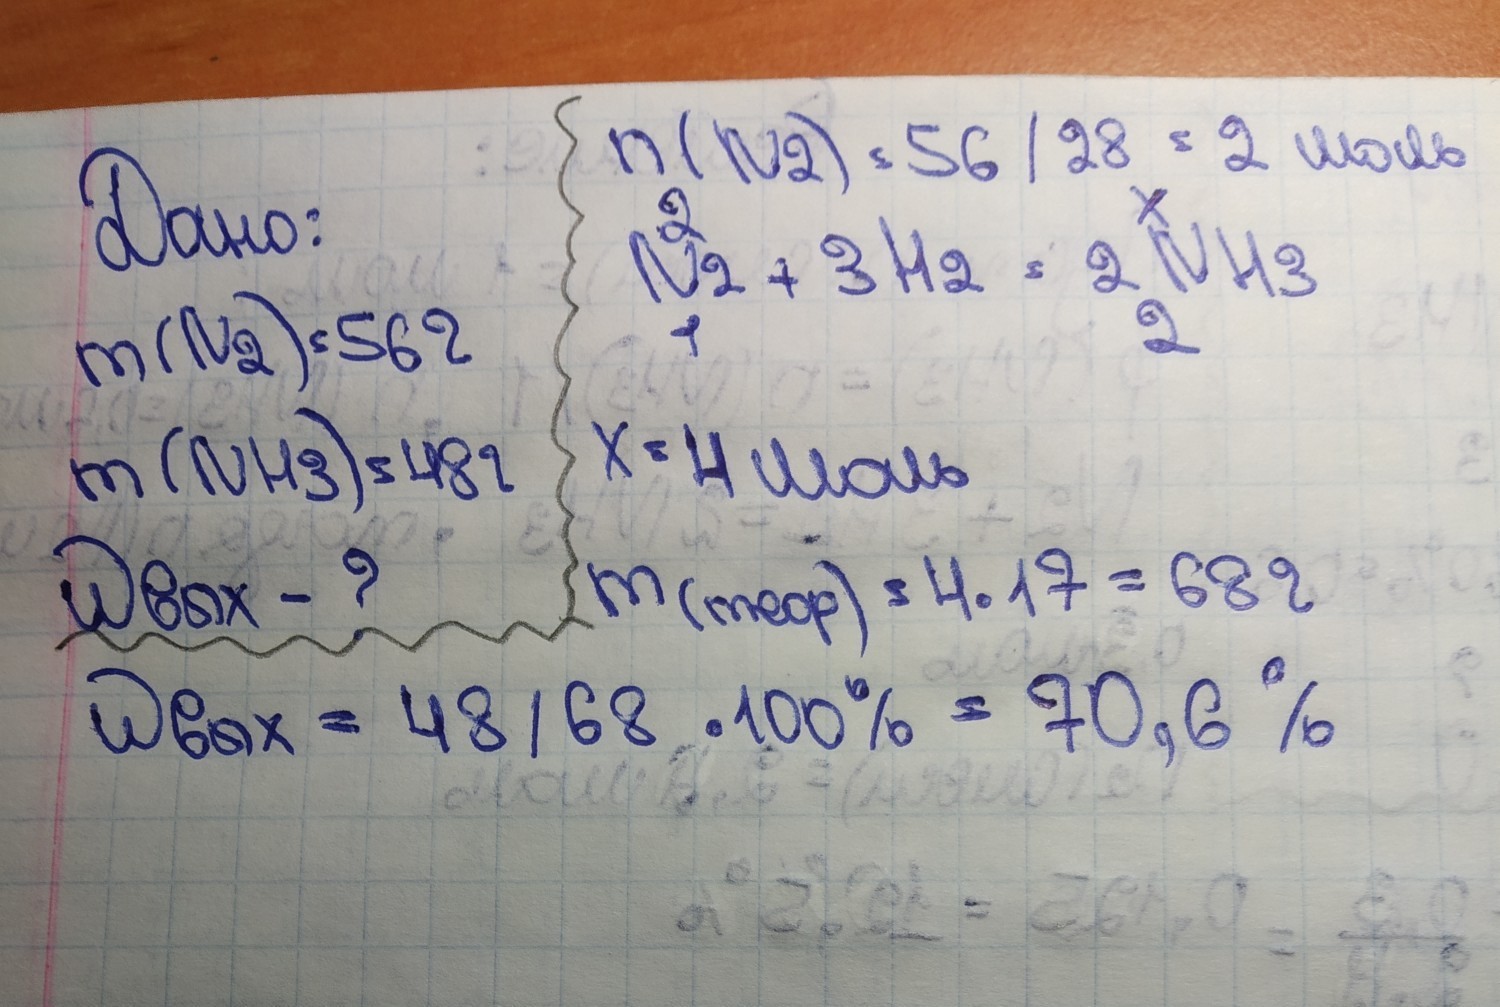 Дано:
m(N2)=56г
m(NH3)=48г
Wвых - ?
n(N2)=56/28=2 моль
2 x
N2+3H2=2NH3
1 2
x=4 моль
m(теор)=4·17=68г
Wвых=48/68·100%=70,6%